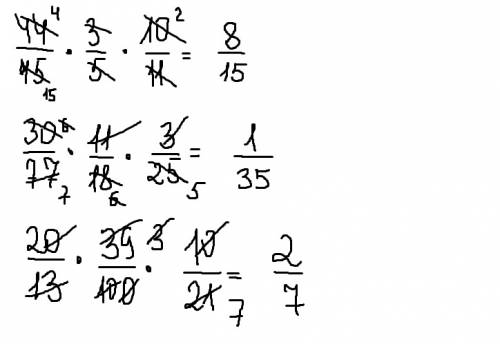 44/15 4 15 · 3/5 · 10/11 2 = 8/15
30/77 6 7 · 11/18 6 · 3/25 5 = 1/35
20/13 · 39/100 3 · 10/21 7 = 2/7